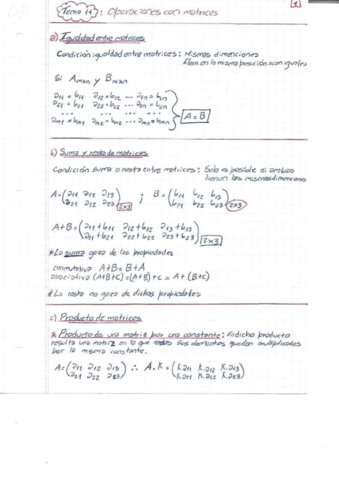 1
Tema 11: Operaciones con matrices
a) Igualdad entre matrices
Condición igualdad entre matrices: Mismas dimensiones
Elem en la misma posición son iguales
Si Amxn y Bmxn
a11 = b11 a12 = b12 ... a1n = b1n
a21 = b21 a22 = b22 ... a2n = b2n
... ... ...
am1 = bm1 am2 = bm2 ... amn = bmn
A = B
b) Suma y resta de matrices
Condición suma o resta entre matrices: Solo es posible si ambas
tienen las mismas dimensiones
A = (a11 a12 a13 ; B = (b11 b12 b13
a21 a22 a23) 2x3 b21 b22 b23) 2x3
A+B = (a11+b11 a12+b12 a13+b13
a21+b21 a22+b22 a23+b23) 2x3
* La suma goza de las propiedades
conmutativa A+B = B+A
asociativa (A+B+C) = (A+B)+C = A+(B+C)
* La resta no goza de dichas propiedades
c) Producto de matrices
* Producto de una matriz por una constante: dicho producto
resulta una matriz en la que todos sus elementos quedan multiplicados
por la misma constante.
A = (a11 a12 a13 ∴ A.K = (K.a11 K.a12 K.a13
a21 a22 a23) K.a21 K.a22 K.a23)